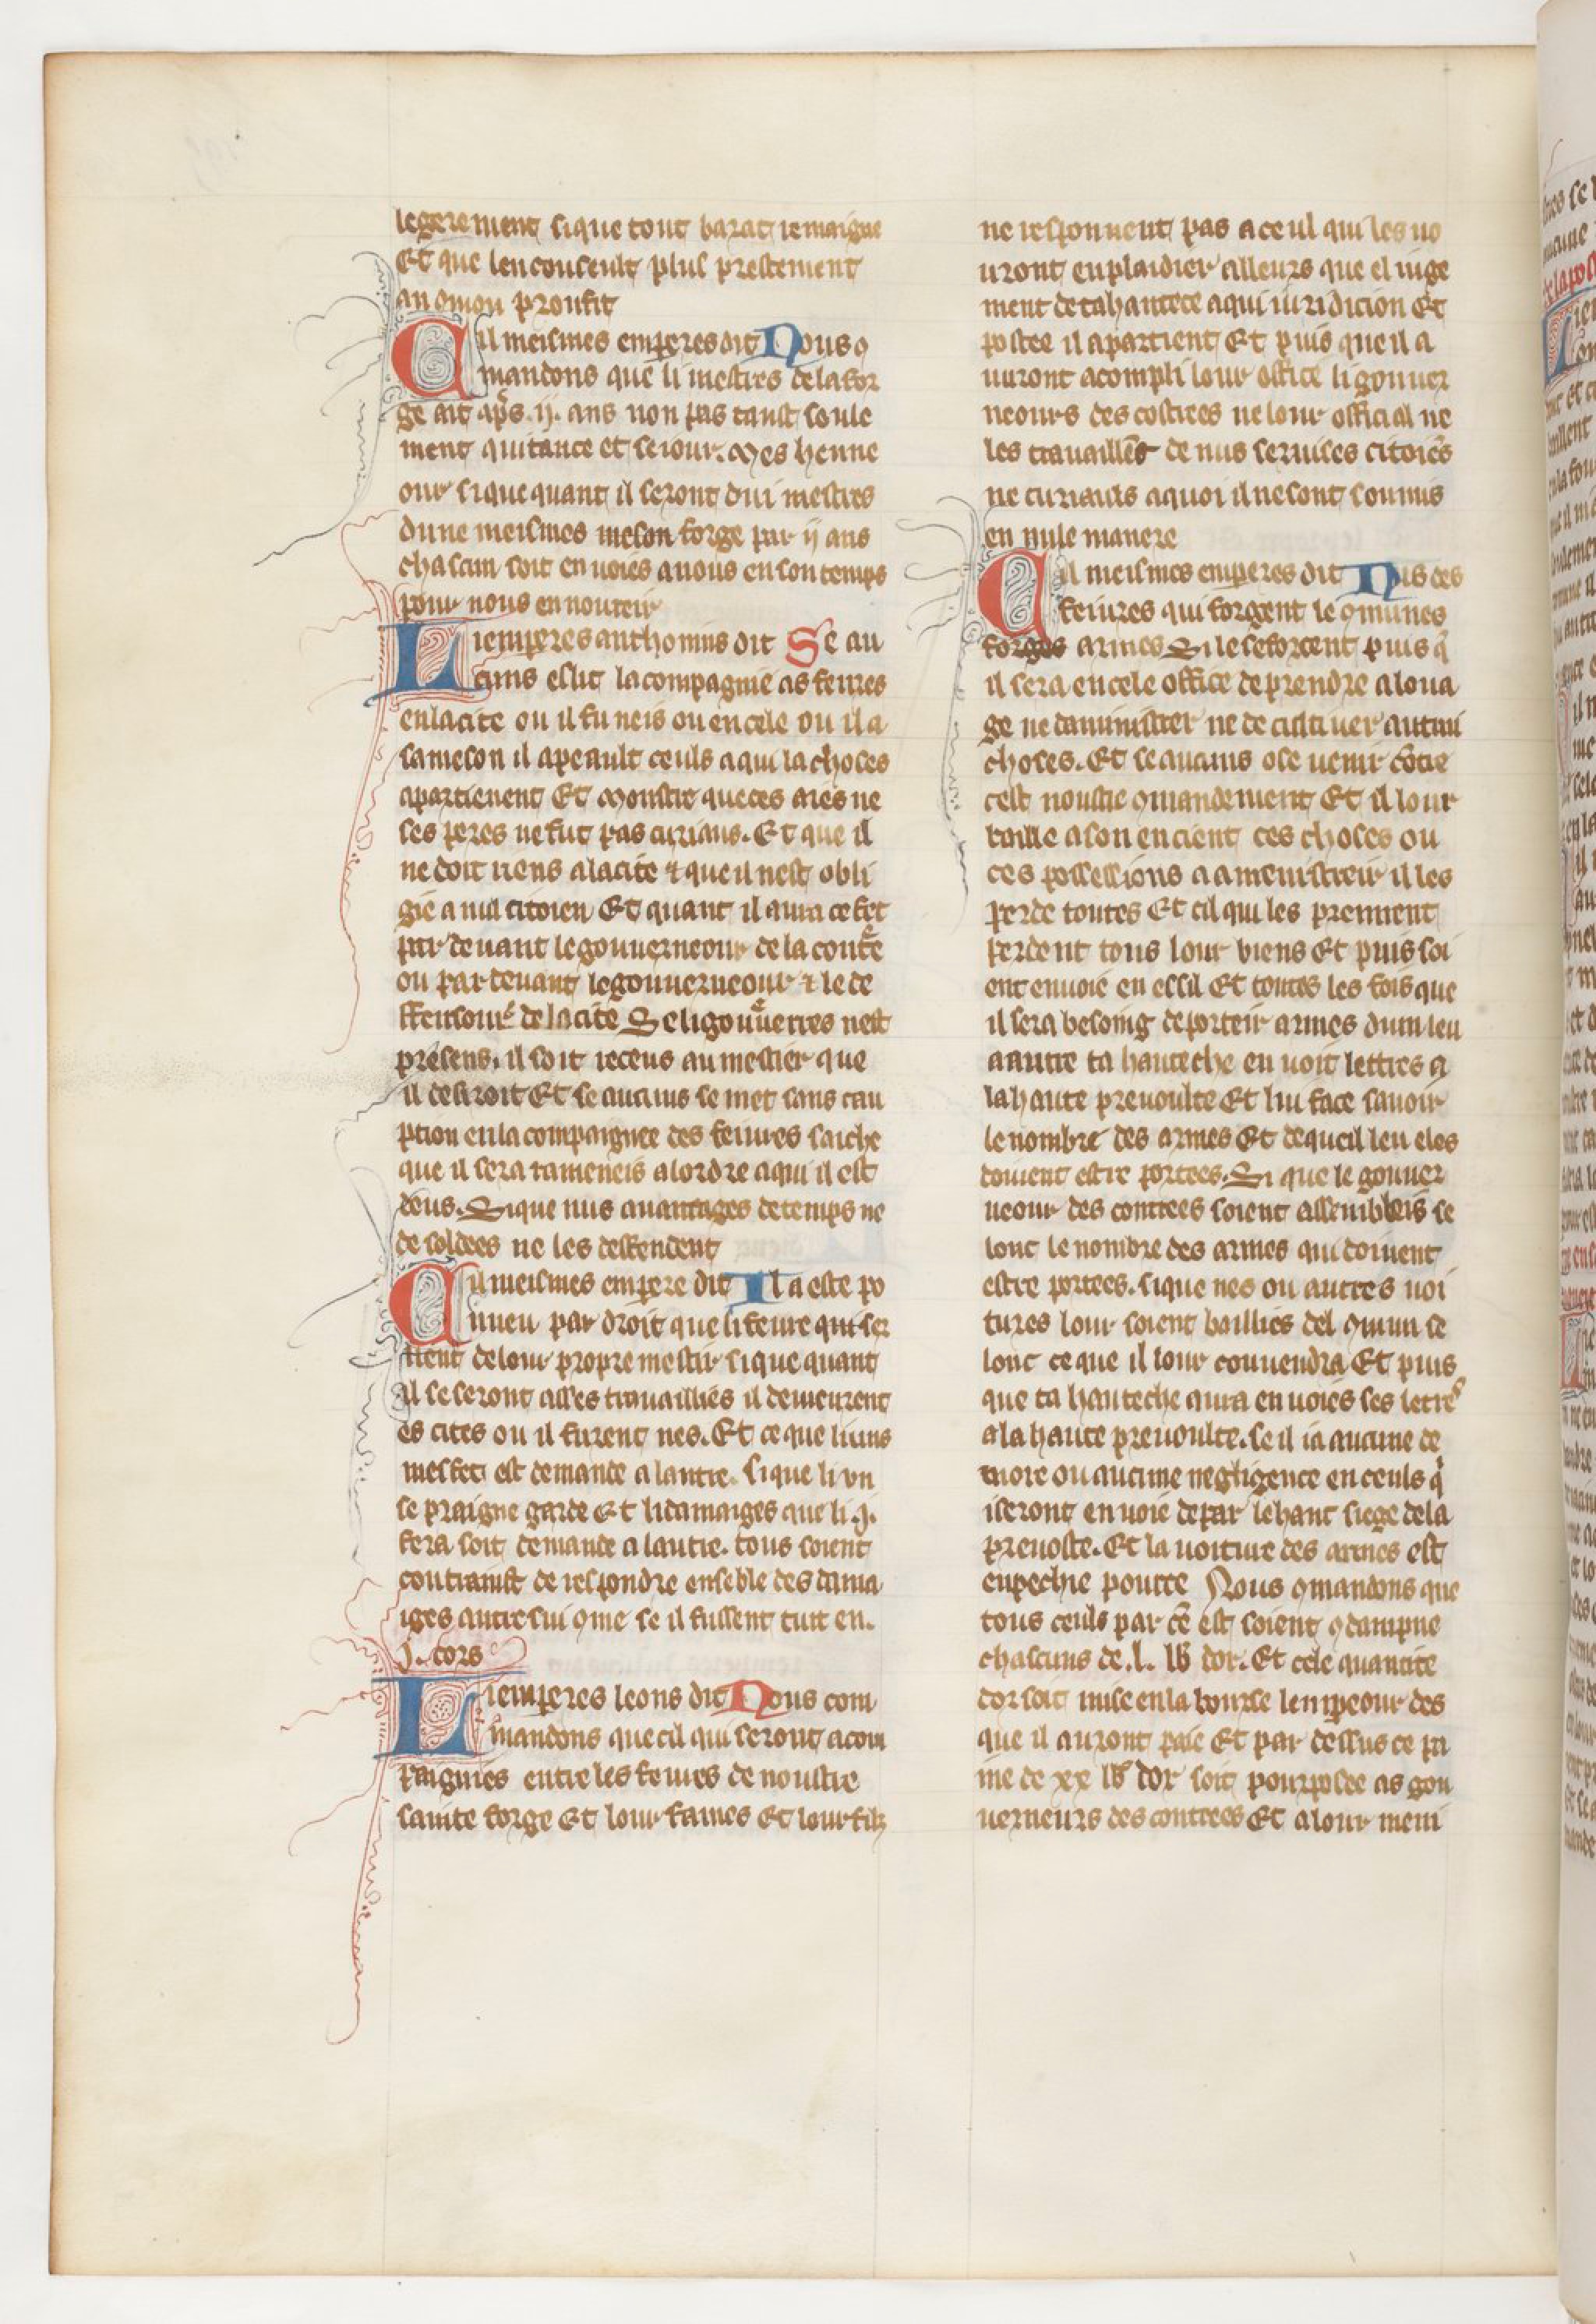 legerement sique tout barat remaigne
Et que lenconseult plus prestement
an 9mon proufit
Cil meismes emperes dit Nous 9
mandons que li mestres delafor
ge ait aps .ij. ans non pas tanst soule
ment quitance et seiour. Mes henne
our sique quant il seront dui mestres
dune meismes meson forge par ij ans
chascun soit en uoies a nous en son temps
pour nous ennoureir
Li emperes anthonius dit Se au
cuns eslit la compagnie as feures
enlacite ou il fu neis ou en cele ou il a
sameson il apeault ceuls a qui la choses
apartienent Et Monstre que ces aies ne
ses peres ne fut pas curiaus. Et que il
ne doit riens alacite ⁊ que il nest obli
gie a nul citoien Et quant il aura ce fet
par deuant legouuerneour de la contee
ou par deuant legouuerneour ⁊ le de
ffensour de la cite Se ligouuerres nest
presens. il soit receus au mestier que
il desirroit Et se aucuns se met sans cau
ption en la compaignee des feures saiche
que il sera rameneis alordre aqui il est
deus. Si que nus auantages detemps ne
de soldees ne les deffendent
Cil meismes empere dit Il a este po
rueu par droit que li feure qui ser
uent de lour propre mestir si que quant
il se seront asses trauaillies il demeurent
es cites ou il furent nes. Et ce que li uns
mesfet est demande a lautre. si que li vn
se praigne garde Et li damaiges que li .j.
fera soit demande a lautre. tous soient
contrainst de respondre enseble des dama
iges autresui 9me se il fussent tuit en.
.j. cors
Li emperes leons dit Nous com
mandons que cil qui seront acom
paignies entre les feures de noustre
sainte forge Et lour fames Et lour filz
ne responnent pas a ceul qui les uo
uront en plaidier alleurs que el iuge
ment de ta hautece a qui iuridicion Et
postee il apartient Et puis que il a
uuront acompli lour office li gouuer
neours des costrees ne lour official ne
les trauaillent de nus seruises citoies
ne curiauls a quoi il ne sont soumis
en nule manere
Cil meismes emperes dit Nus des
feiures qui forgent le 9munes
forges armes Si ne seforcent puis q̃
il sera en cele office de prendre a loua
ge ne daministrer ne de cultiuer autrui
choses. Et se aucuns ose uenir cõtre
cest noustre 9mandement Et il lour
baille a son encient ces choses ou
ces possessions a amenistreir il les
perde toutes Et cil qui les prennent
perdent tous lour biens Et puis soi
ent enuoie en essil Et toutes les fois que
il sera besoing de porteir armes dum leu
a autre ta hauteche en uoit lettres a
la haute preuoulte Et lui face sauoir
le nombre des armes Et de queil leu eles
doiuent estre portees. Si que le gouuer
neour des contrees soient assembleis se
lonc le nombre des armes qui doiuent
estre portees. sique nes ou autres uoi
tures lour soient baillies del 9mun se
lonc ce que il lour conuendra Et puis
que ta hauteche aura en uoies ses letres
a la haute preuoulte. se il ia aucune de
more ou aucune negligence en ceuls q̃
iseront en uoie de par lehaut siege dela
preuoste. Et la uoiture des armes est
enpechie pource Nous 9mandons que
tous ceuls par ce est soient 9dampne
chascuns de .l. lb dor. Et cele quantite
dor soit mise en la bourse lempeour des
que il auront paie Et par dessus ce pa
ine de xx lb dor soit pourposee as gou
uerneurs des contrees Et a lour meni